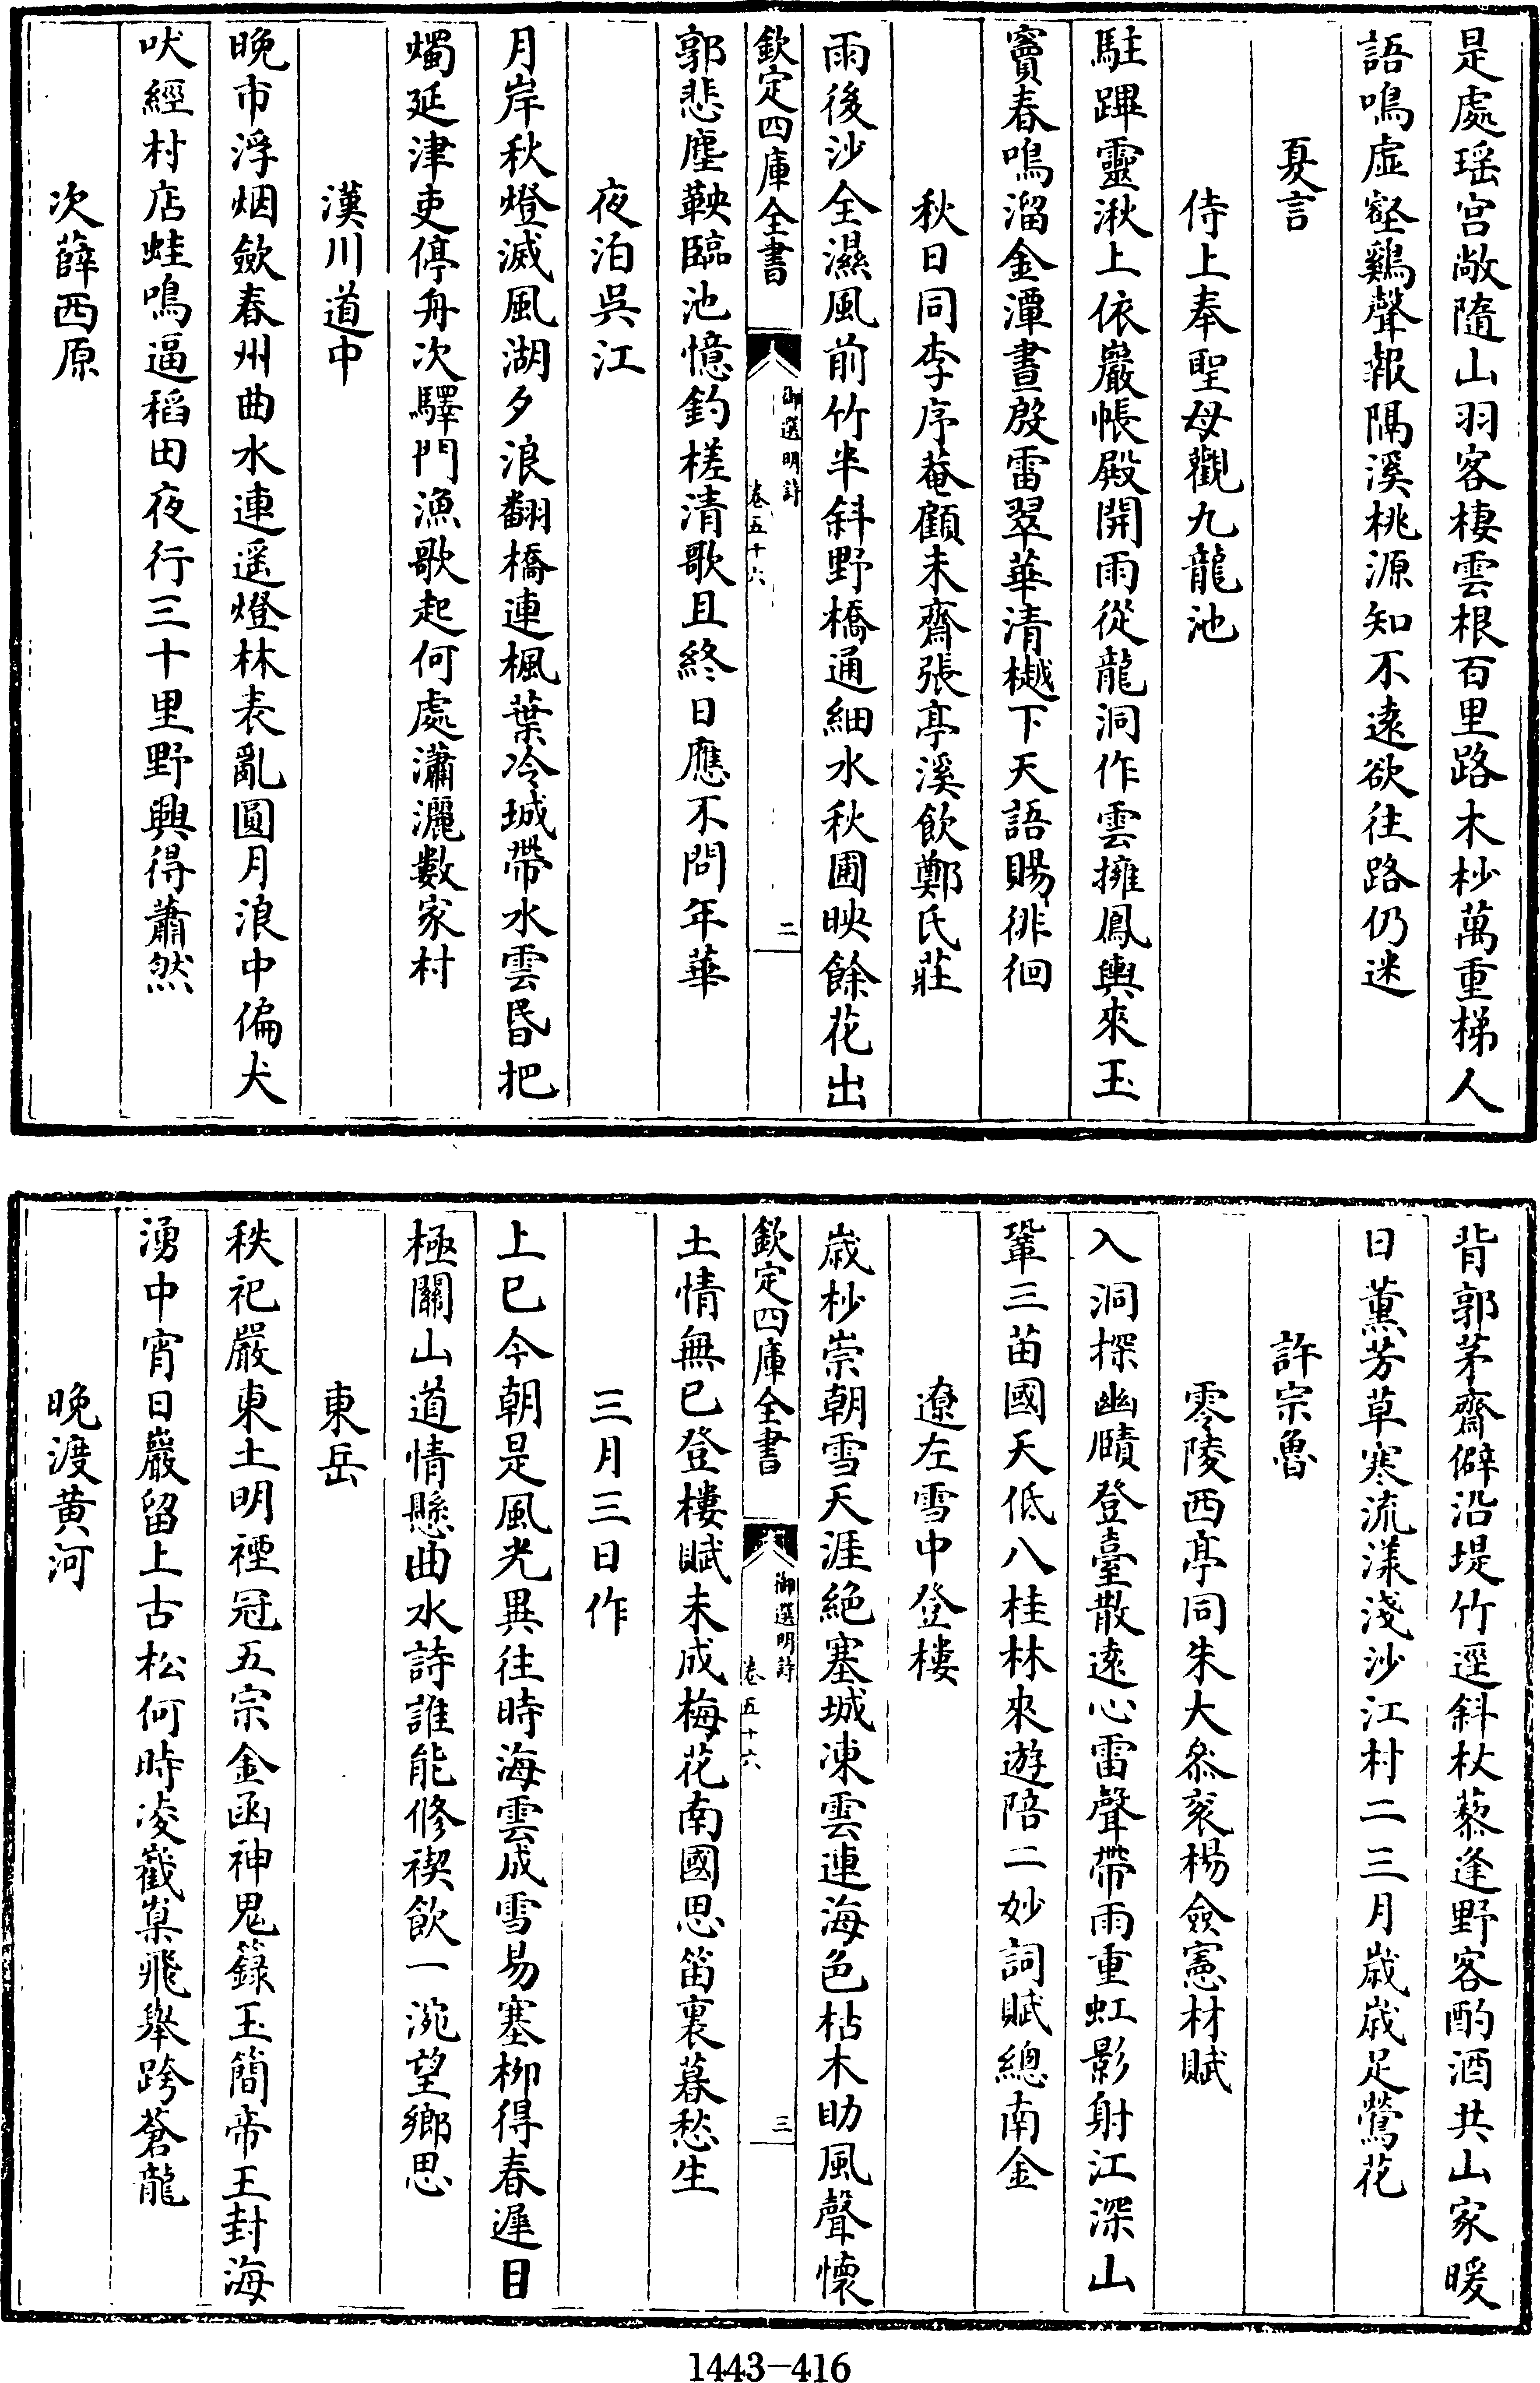 是處瑶宫敞隨山羽客棲雲根百里路木杪萬重梯人
語鳴虛壑鷄聲報隔溪桃源知不逺欲往路仍迷
夏言
侍上奉聖母觀九龍池
駐蹕靈湫上依巖帳殿開雨從龍洞作雲擁鳳輿來玉
竇春鳴溜金潭晝殷雷翠華清樾下天語賜徘徊
秋日同李序菴顧未齋張亭溪飲鄭氏莊
雨後沙全濕風前竹半斜野橋通細水秋圃映餘花出
欽定四庫全書
御選明詩
卷五十六
二
郭悲塵鞅臨池憶釣槎清歌且終日應不問年華
夜泊吳江
月岸秋燈滅風湖夕浪翻橋連楓葉冷城帶水雲昏把
燭延津吏停舟次驛門漁歌起何處瀟灑數家村
漢川道中
晚市浮烟斂春州曲水連遥燈林表亂圓月浪中偏犬
吠經村店蛙鳴逼稻田夜行三十里野興得蕭然
次薛西原
背郭茅齋僻沿堤竹逕斜杖藜逢野客酌酒共山家暖
日薰芳草寒流漾淺沙江村二三月歲歲足鶯花
許宗魯
零陵西亭同朱大叅衮楊僉憲材賦
入洞探幽賾登臺散逺心雷聲帶雨重虹影射江深山
鞏三苗國天低八桂林來遊陪二妙詞賦總南金
遼左雪中登樓
歲杪崇朝雪天涯絶塞城凍雲連海色枯木助風聲懷
欽定四庫全書
御選明詩
卷五十六
三
土情無已登樓賦未成梅花南國思笛裏暮愁生
三月三日作
上巳今朝是風光異往時海雲成雪易塞柳得春遲目
極關山道情懸曲水詩誰能修禊飲一涴望鄉思
東岳
秩祀嚴東土明禋冠五宗金函神鬼籙玉簡帝王封海
湧中宵日巖留上古松何時凌巀嶪飛舉跨蒼龍
晚渡黄河
1443-416